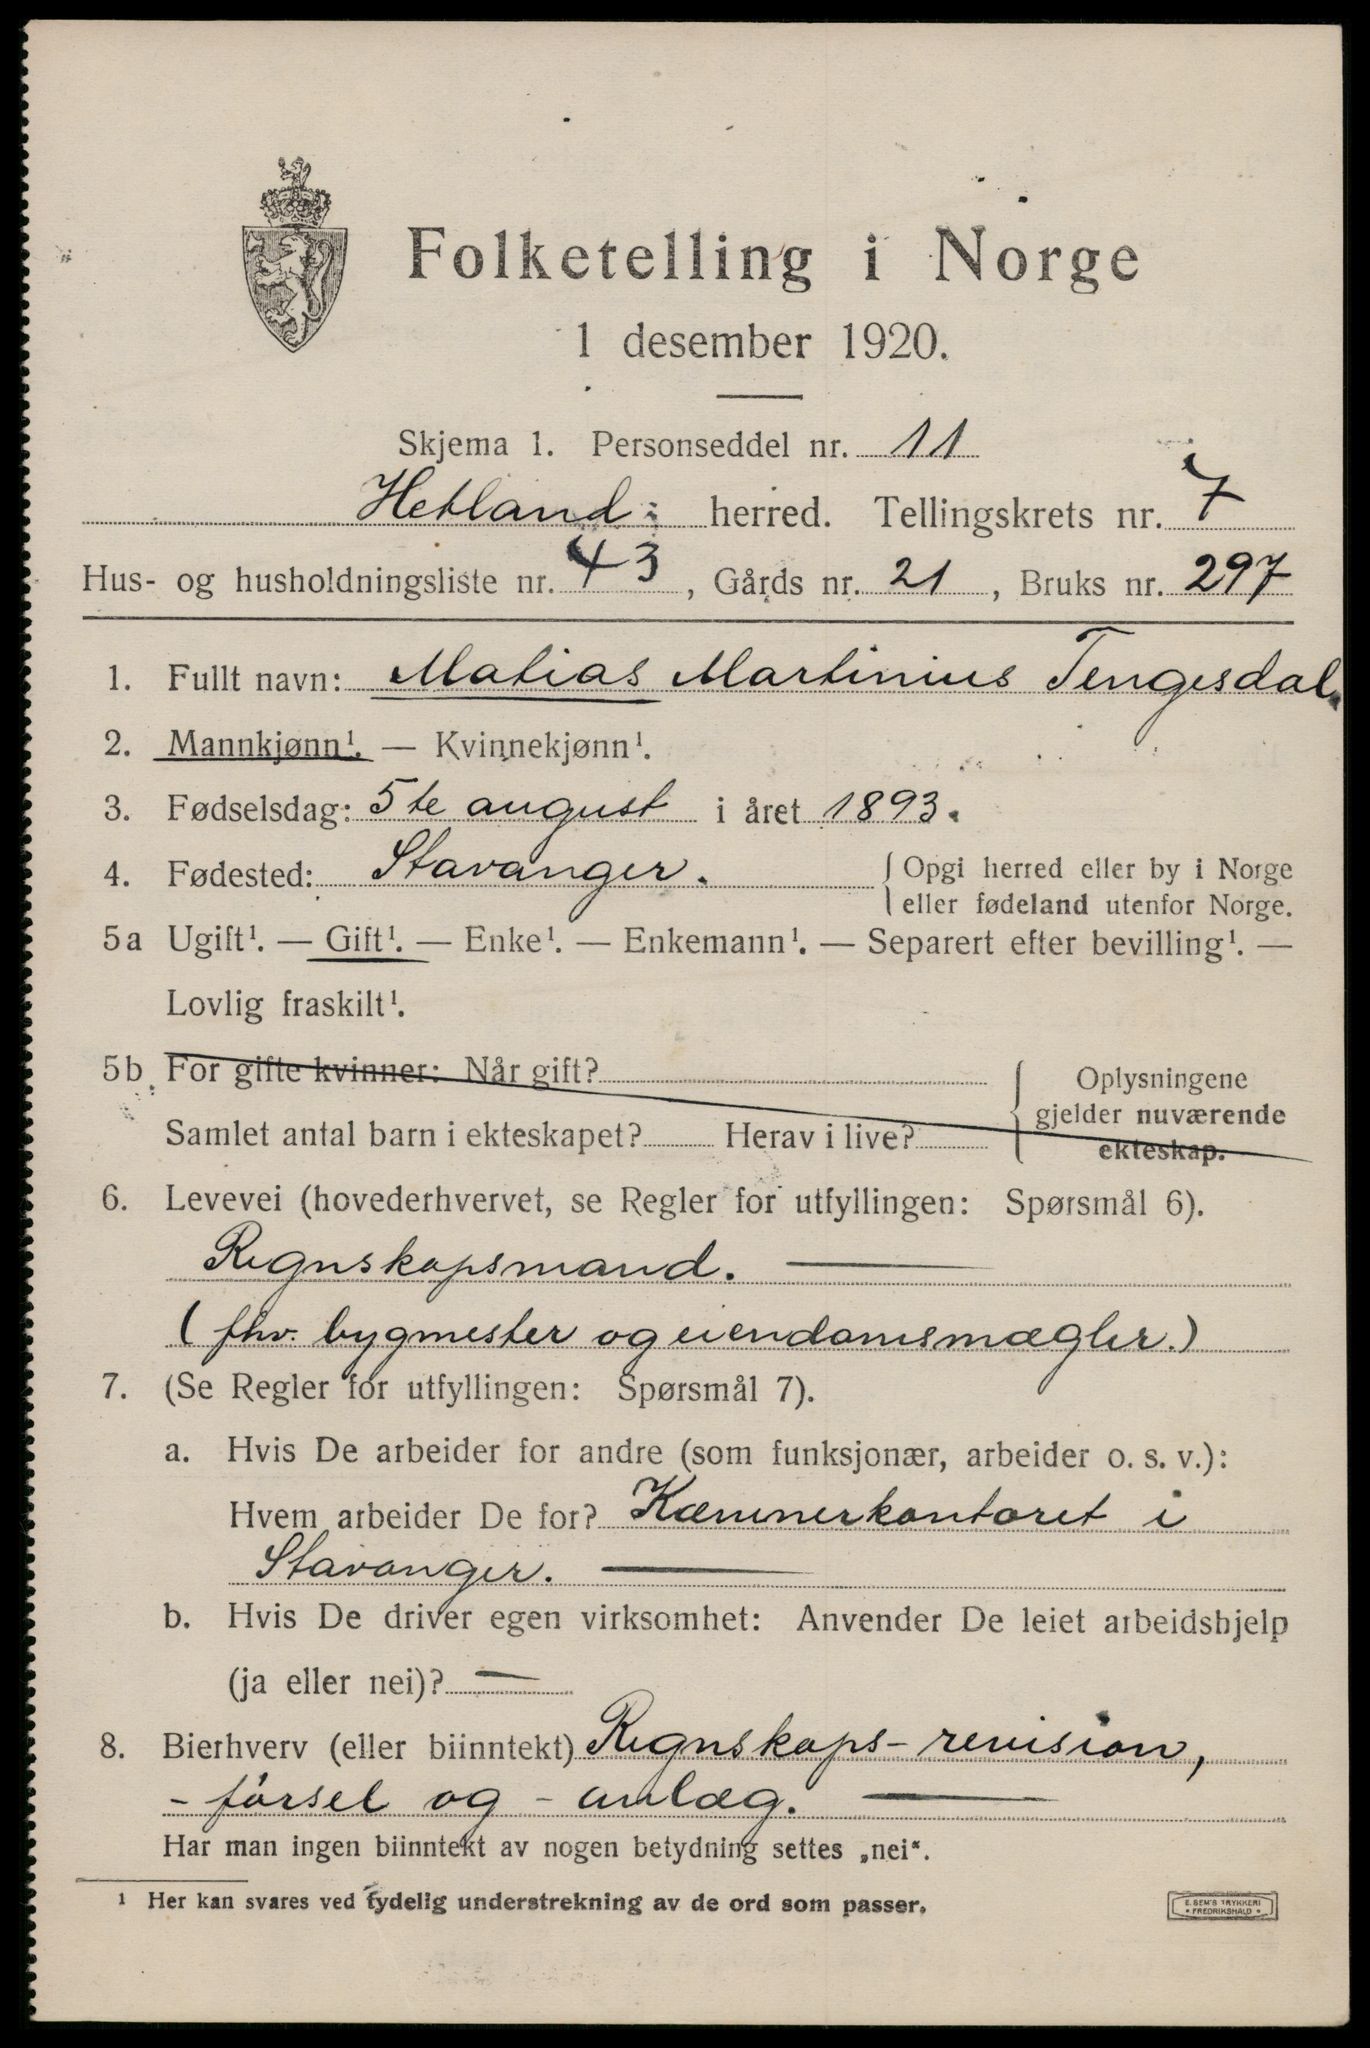 Folketelling i Norge
1 desember 1920.
Skjema 1. Personseddel nr. 11
Hetland herred. Tellingskrets nr. 7
Hus- og husholdningsliste nr. 43, Gårds nr. 21, Bruks nr. 297
1. Fullt navn: Matias Martinius Tengesdal.
2. Mannkjønn¹. — Kvinnekjønn¹.
3. Fødselsdag: 5te august i året 1893.
4. Fødested: Stavanger. { Opgi herred eller by i Norge
eller fødeland utenfor Norge.
5a Ugift¹. — Gift¹. — Enke¹. — Enkemann¹. — Separert efter bevilling¹. —
Lovlig fraskilt¹.
5b. For gifte kvinner: Når gift? { Oplysningene
gjelder nuværende
Samlet antal barn i ekteskapet? Herav i live?
ekteskap.
6. Levevei (hovederhvervet, se Regler for utfyllingen: Spørsmål 6).
Regnskapsmand. —
(fhv. bygmester og eiendomsmægler.)
7. (Se Regler for utfyllingen: Spørsmål 7).
a. Hvis De arbeider for andre (som funksjonær, arbeider o. s. v.):
Hvem arbeider De for? Kæmnerkontoret i
Stavanger. —
b. Hvis De driver egen virksomhet: Anvender De leiet arbeidshjelp
(ja eller nei)? —
8. Bierhverv (eller biinntekt) Regnskaps-revision,
-førsel og -anlæg. —
Har man ingen biinntekt av nogen betydning settes „nei“.
¹ Her kan svares ved tydelig understrekning av de ord som passer.
E. SEM'S TRYKKERI
• FREDRIKSHALD •